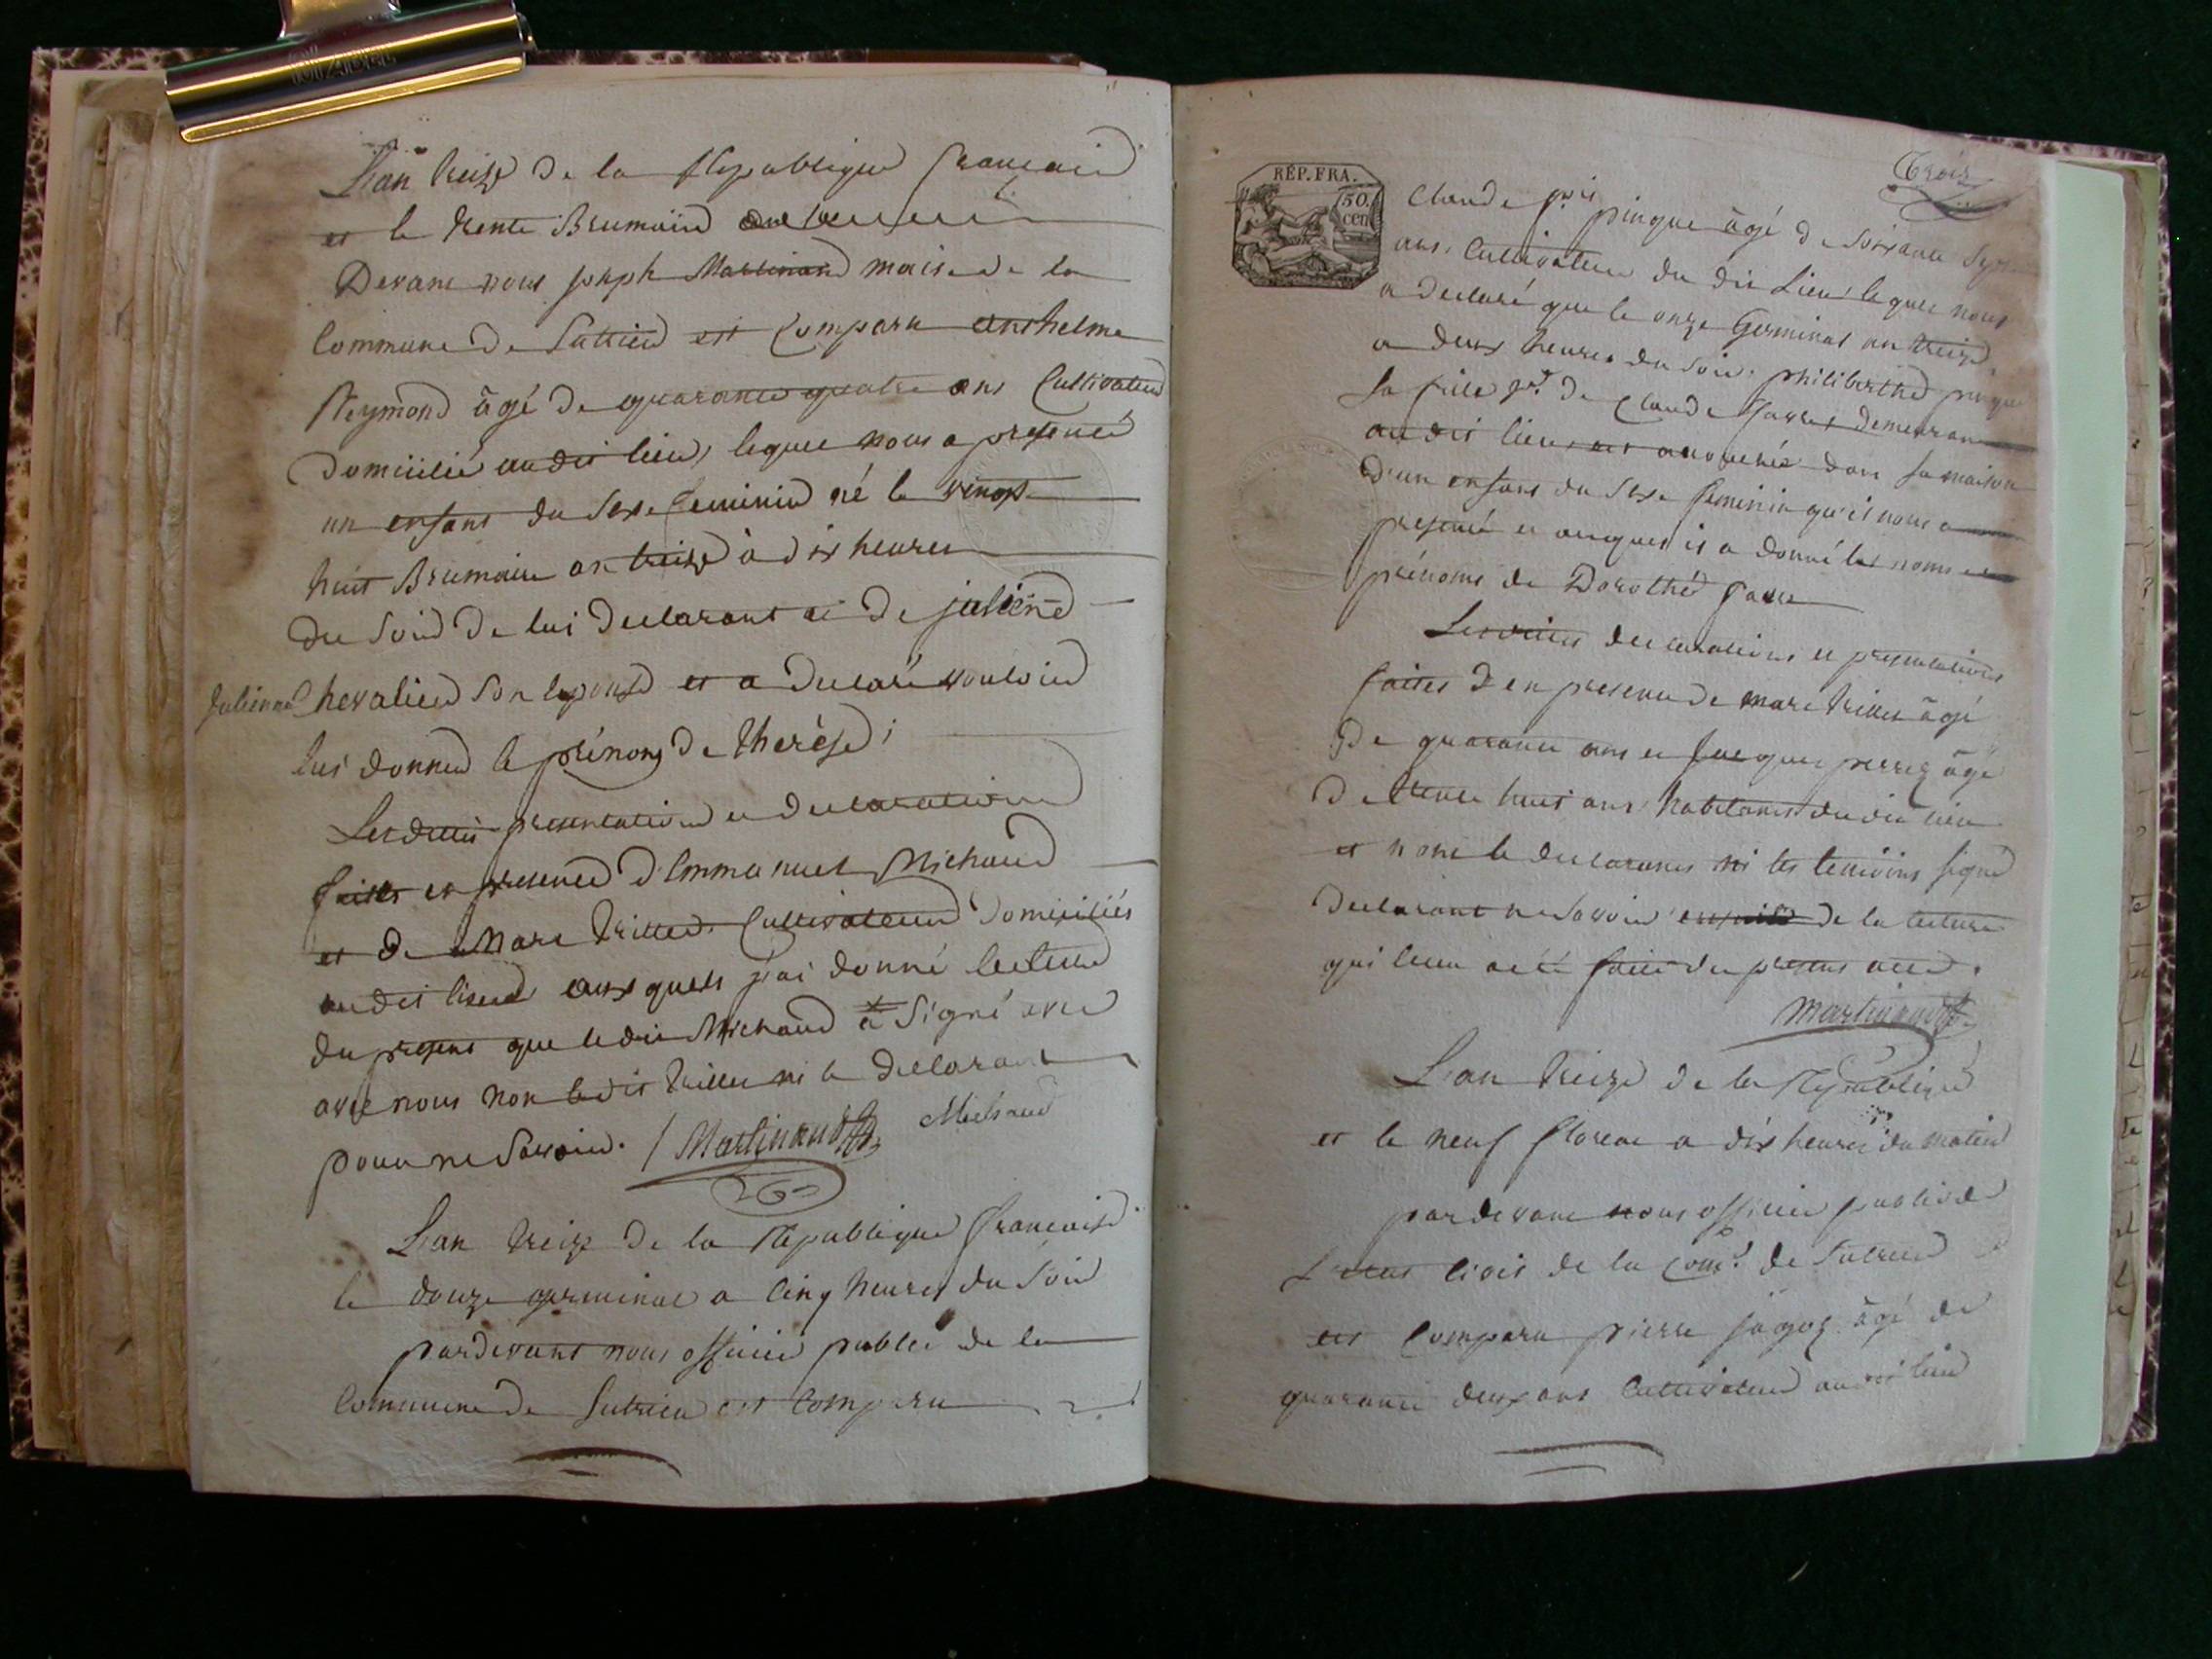 L'an treize de la Republique francaise
et le trente Brumaire
Devant nous joseph Martinand maire de la
Commune de Suttrieu est Comparu anthelme
Reymond âgé de quarante quatre ans Cultivateur
domicilié audit lieu, lequel nous a presenté
un enfant du Sexe feminin né le vingt
huit Brumaire an treize à dix heures
du Soir de lui declarant et de juliene
Chevalier Son epouse et a declaré vouloir
lui donner le prénom de thérèse;
Lesdittes presentation et declaration
faites en presence d'Emmanuel Michaud
et de Marc trillet Cultivateurs domiciliés
audit lieu auxquels j'ai donné lecture
du present que ledit Michaud a Signé avec
avec nous non ledit trillet ni le declarant
pour ne Savoir. Martinand Michaud
L'an treize de la Republique francaise
le douze germinal a cinq heures du Soir
pardevant nous officier public de la
Commune de Sutrieu est comparu
Trois
RÉP. FRA.
50 cen
Claude pingue âgé de Soixante Sept
ans, Cultivateur du dit Lieu lequel nous
a declaré que le onze Germinal an treize
a deux heures du Soir philiberthe pingue
Sa fille de Claude demeurant
audit lieu est accouchée dans sa maison
d'un enfant du Sexe feminin qu'il nous a
presenté et auquel il a donné les noms et
prénoms de Dorothé
Lesdittes declarations et presentations
faites en presence de marc trillet âgé
de quarante ans et Jacques perret âgé
de trente huit ans habitants dudit lieu
et n'ont le declarant ni les temoins signé
declarant ne Savoir de la lecture
qui leur a été faite du present acte.
Martinand
L'an treize de la Republique
et le neuf floreal a dix heures du matin
pardevant nous officier public de
L'etat civil de la Com.e de Sutrieu
est Comparu pierre jagoz âgé de
quarante deux ans Cultivateur audit lieu